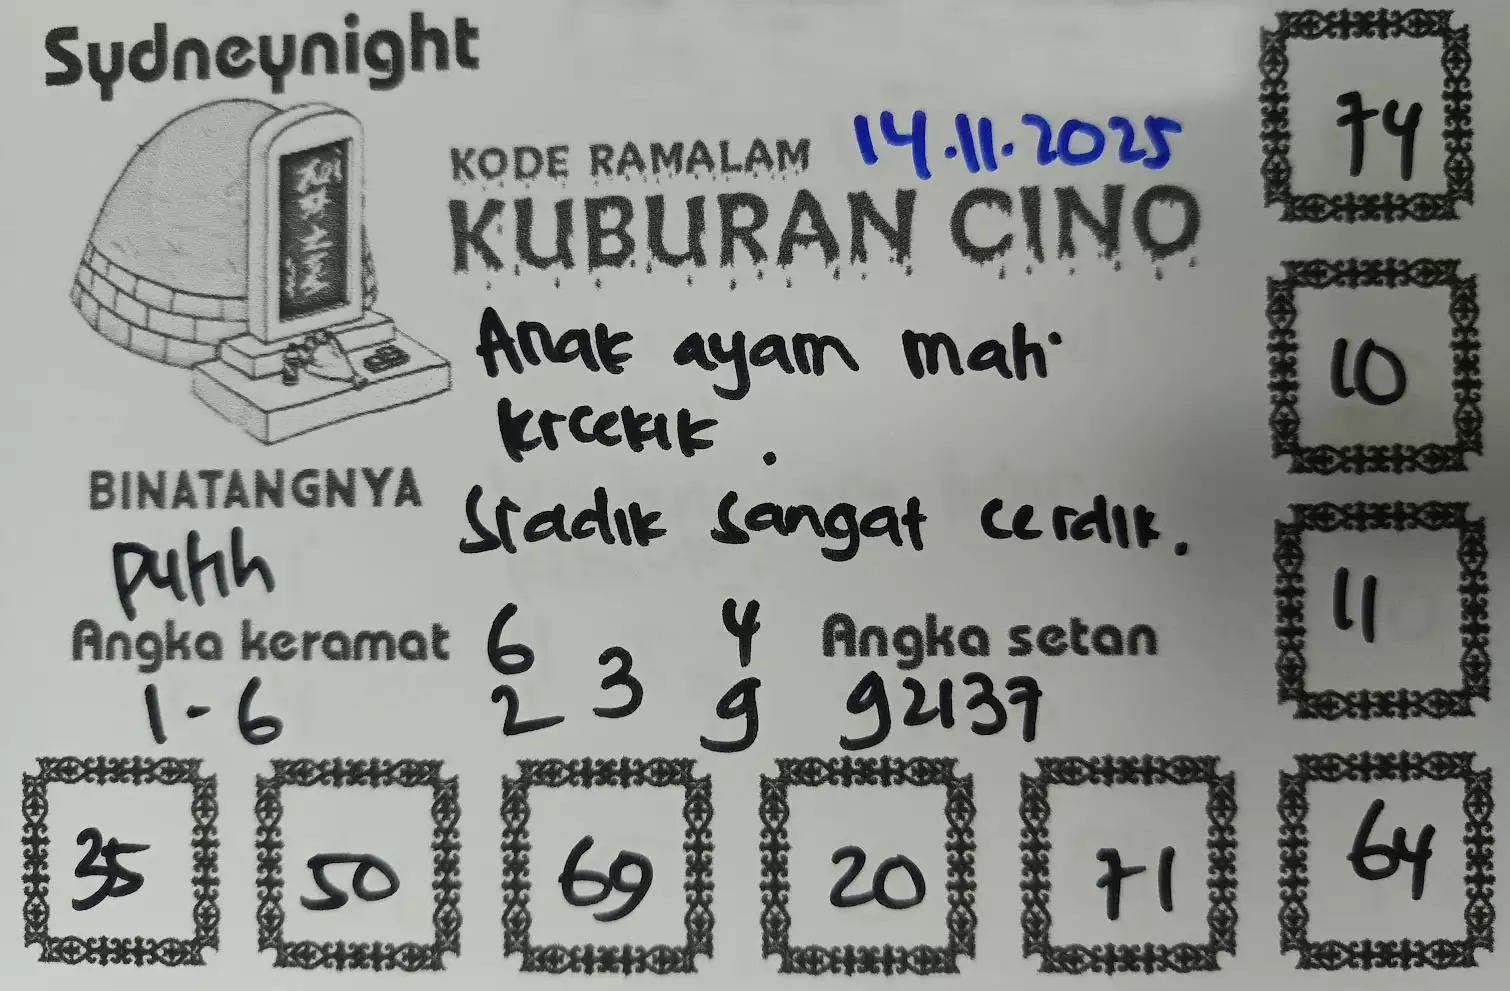 Sydneynight
KODE RAMALAM 14.11.2025
KUBURAN CINO
Anak ayam mati
krcekik.
Sradik sangat cerdik.
BINATANGNYA
putih
Angka keramat
1-6
6 4
3
2 9
Angka setan
92137
74
10
11
35 50 69 20 71 64